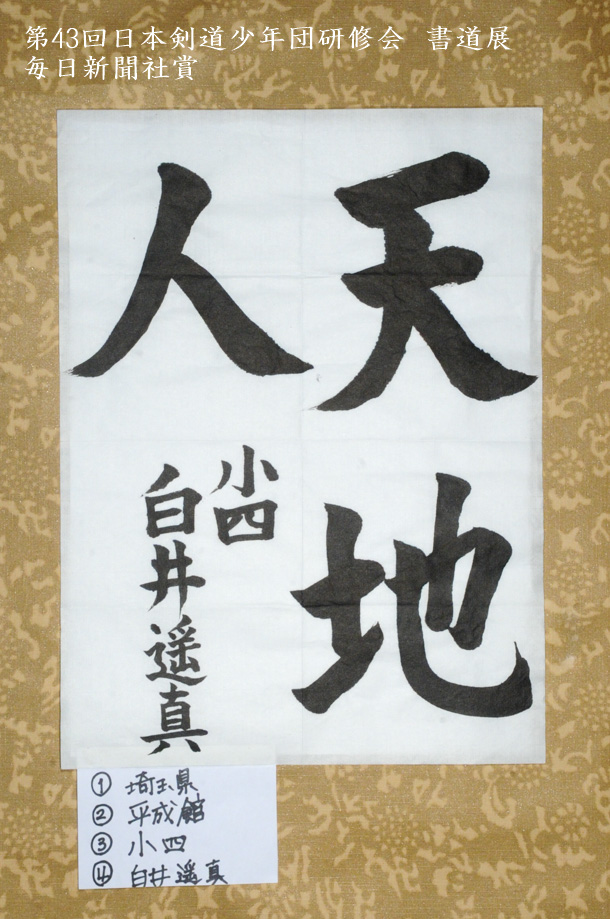 第43回日本剣道少年団研修会 書道展
毎日新聞社賞
天地
人
小四
白井遥真
① 埼玉県
② 平成館
③ 小四
④ 白井遥真